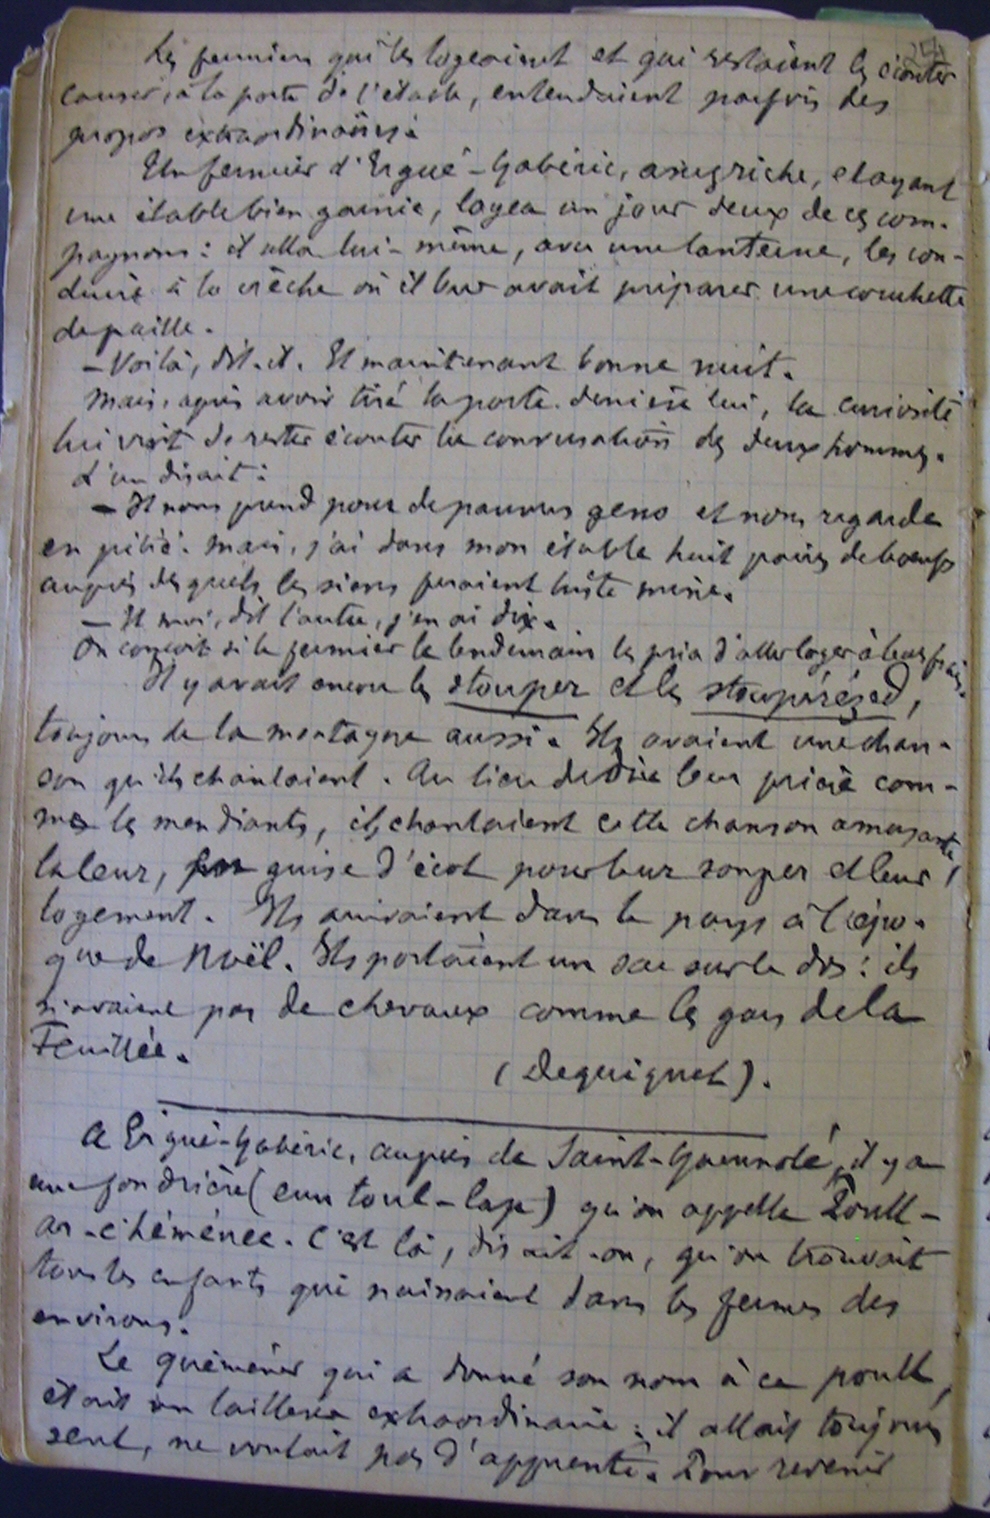 Les fermiers qui les logeaient et qui restaient les écouter
causer, à la porte de l'étable, entendaient parfois des
propos extraordinaires.
Un fermier d'Ergué-Gabéric, assez riche, et ayant
une étable bien garnie, logea un jour deux de ces com-
pagnons : il alla lui-même, avec une lanterne, les con-
duire à la crèche où il leur avait préparer une couchette
de paille.
— Voilà, dit-il. Et maintenant bonne nuit.
Mais, après avoir tiré la porte derrière lui, la curiosité
lui vint de rester écouter la conversation des deux hommes.
L'un disait :
— Il nous prend pour de pauvres gens et nous regarde
en pitié. Mais, j'ai dans mon étable huit paires de boeufs
auprès desquels les siens feraient triste mine.
— Et moi, dit l'autre, j'en ai dix.
On conçoit si le fermier le lendemain les pria d'aller loger à leurs frais.
Il y avait encore les stouper et les stoupérézed,
toujours de la montagne aussi. Ils avaient une chan-
son qu'ils chantaient. Au lieu de dire leur prière com-
me les mendiants, ils chantaient cette chanson amusante,
la leur, en guise d'écot pour leur souper et leur
logement. Ils arrivaient dans le pays à l'épo-
que de Noël. Ils portaient un sac sur le dos : ils
n'avaient pas de chevaux comme les gars de la
Feuillée.
(Deguignet).
A Ergué-Gabéric, auprès de Saint-Guennolé, il y a
une fondrière (eun toul-lap) qu'on appelle Poull-
ar-c'héménèr. C'est là, disait-on, qu'on trouvait
tous les enfants qui naissaient dans les fermes des
environs.
Le quéménèr qui a donné son nom à ce poull,
était un tailleur extraordinaire : il allait toujours
seul, ne voulait pas d'apprenti. Pour revenir